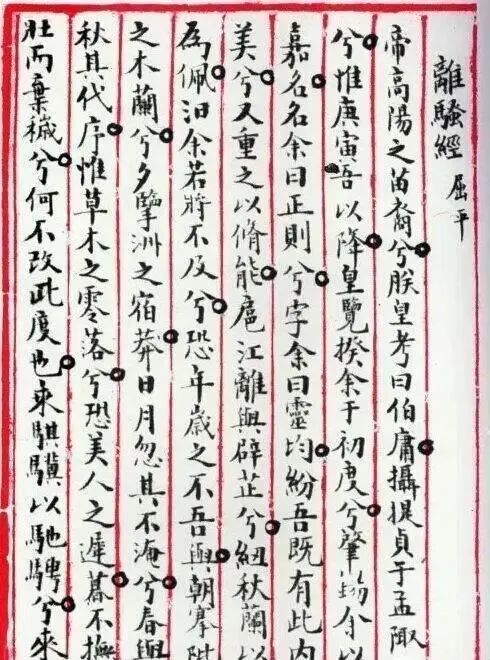 離騷經 屈平
帝高陽之苗裔兮朕皇考曰伯庸攝提貞于孟陬
兮惟庚寅吾以降皇覽揆余于初度兮肇錫余以
嘉名名余曰正則兮字余曰靈均紛吾既有此内
美兮又重之以脩能扈江離與辟芷兮紉秋蘭以
為佩汩余若將不及兮恐年歲之不吾與朝搴阰
之木蘭兮夕擥洲之宿莽日月忽其不淹兮春與
秋其代序惟草木之零落兮恐美人之遲暮不撫
壯而棄穢兮何不改此度也乘騏驥以馳騁兮來